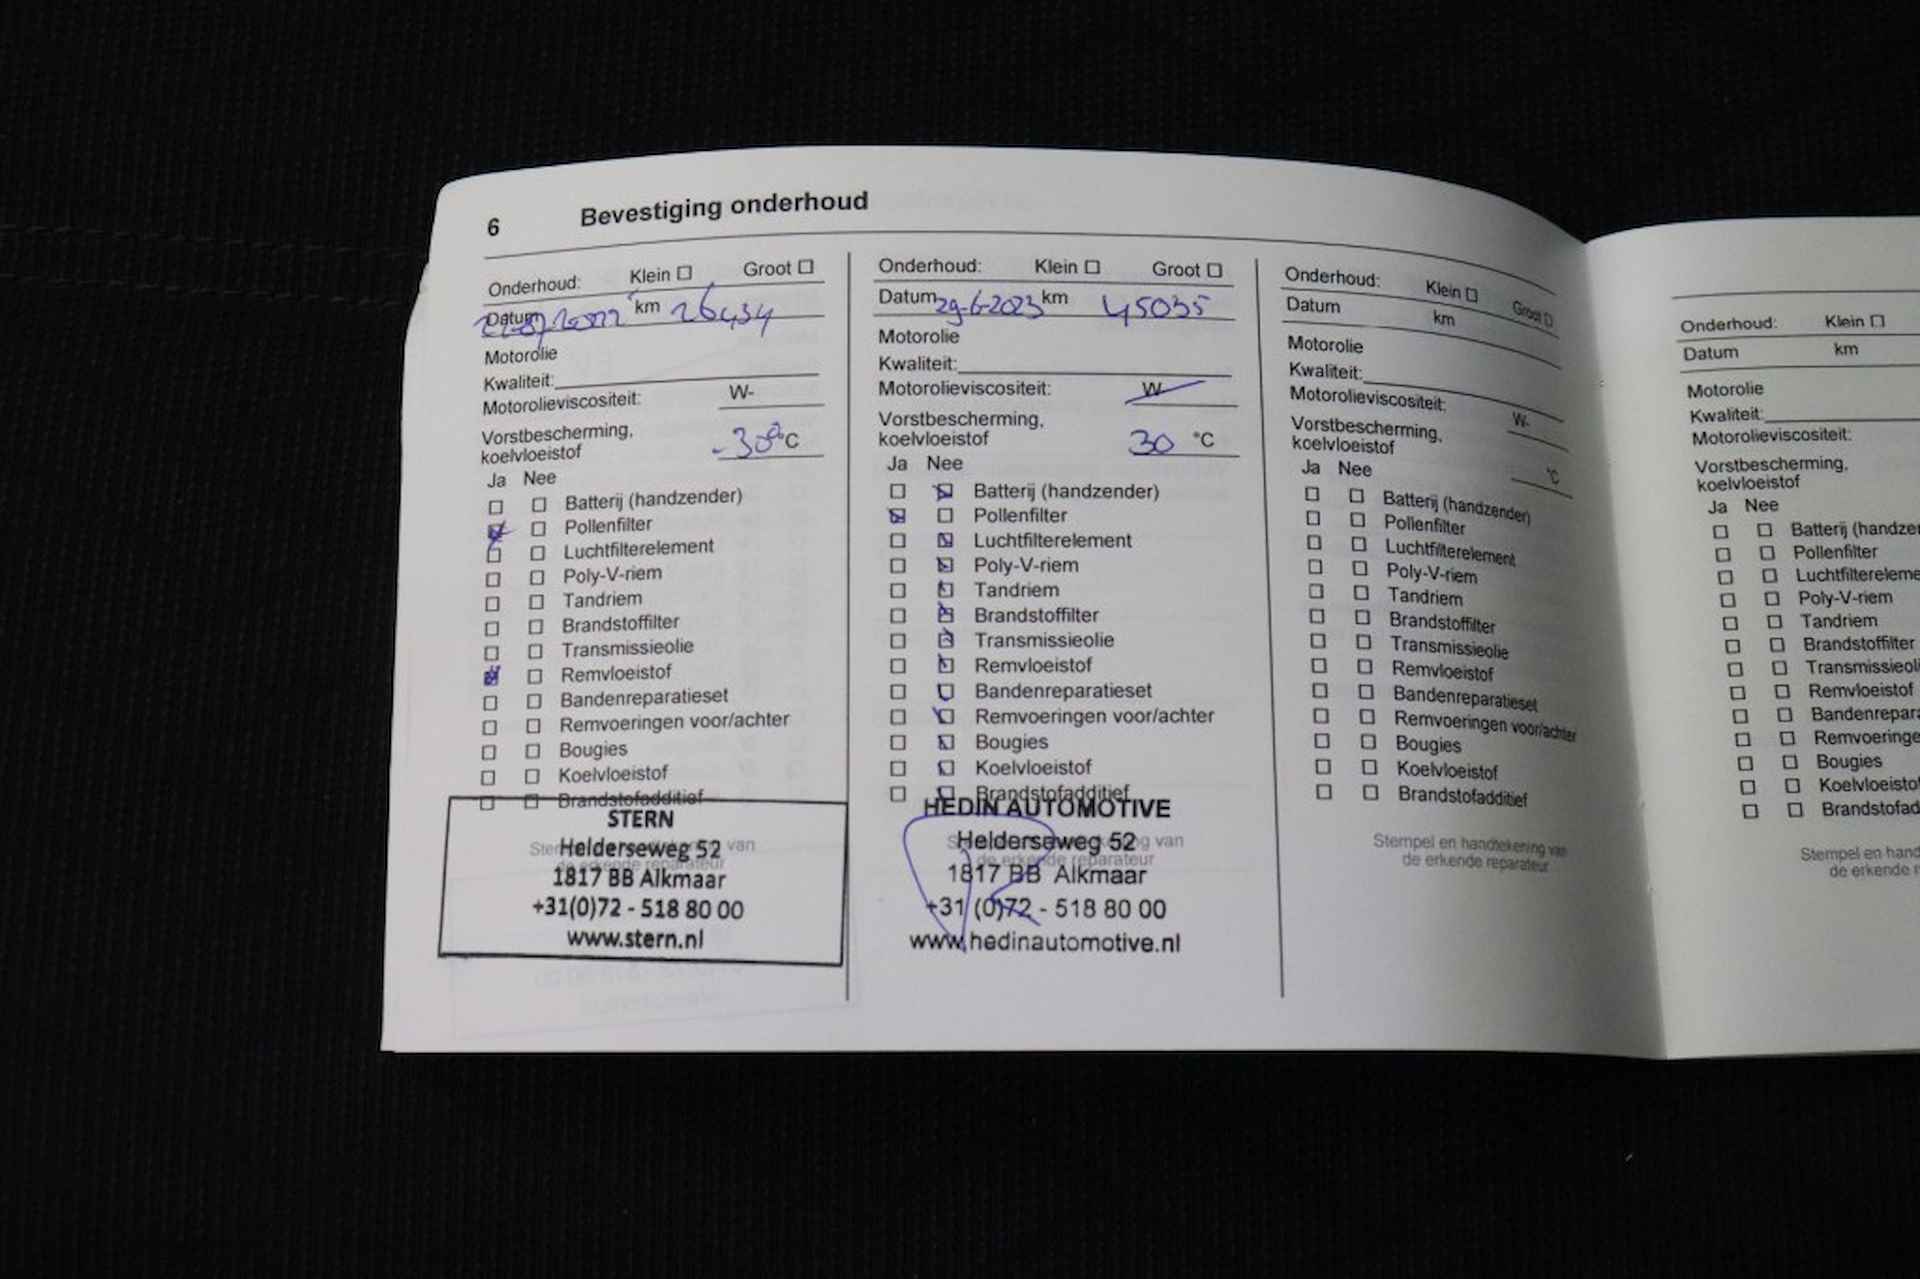 6 Bevestiging onderhoud
Onderhoud: Klein ☐ Groot ☐
Datum km 26434
Motorolie
Kwaliteit:
Motorolieviscositeit: W-
Vorstbescherming,
koelvloeistof -30° °C
Ja Nee
Batterij (handzender)
Pollenfilter
Luchtfilterelement
Poly-V-riem
Tandriem
Brandstoffilter
Transmissieolie
Remvloeistof
Bandenreparatieset
Remvoeringen voor/achter
Bougies
Koelvloeistof
Brandstofadditief
STERN
Helderseweg 52
1817 BB Alkmaar
+31(0)72 - 518 80 00
www.stern.nl
Onderhoud: Klein ☐ Groot ☐
Datum 29-6-2023 km 45035
Motorolie
Kwaliteit:
Motorolieviscositeit: W
Vorstbescherming,
koelvloeistof 30 °C
Ja Nee
Batterij (handzender)
Pollenfilter
Luchtfilterelement
Poly-V-riem
Tandriem
Brandstoffilter
Transmissieolie
Remvloeistof
Bandenreparatieset
Remvoeringen voor/achter
Bougies
Koelvloeistof
Brandstofadditief
HEDIN AUTOMOTIVE
Helderseweg 52
de erkende reparateur
1817 BB Alkmaar
+31 (0)72 - 518 80 00
www.hedinautomotive.nl
Onderhoud: Klein ☐ Groot ☐
Datum km
Motorolie
Kwaliteit:
Motorolieviscositeit: W-
Vorstbescherming,
koelvloeistof °C
Ja Nee
Batterij (handzender)
Pollenfilter
Luchtfilterelement
Poly-V-riem
Tandriem
Brandstoffilter
Transmissieolie
Remvloeistof
Bandenreparatieset
Remvoeringen voor/achter
Bougies
Koelvloeistof
Brandstofadditief
Stempel en handtekening van
de erkende reparateur
Onderhoud: Klein ☐
Datum km
Motorolie
Kwaliteit:
Motorolieviscositeit:
Vorstbescherming,
koelvloeistof
Ja Nee
Batterij (handze
Pollenfilter
Luchtfiltereleme
Poly-V-riem
Tandriem
Brandstoffilter
Transmissieoli
Remvloeistof
Bandenrepara
Remvoeringe
Bougies
Koelvloeisto
Brandstofad
Stempel en hand
de erkende r